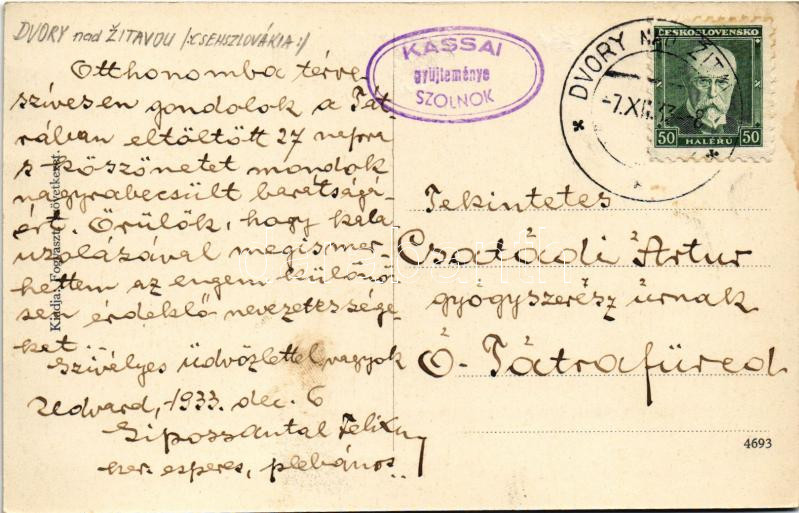 DVORY nad ŽITAVOU /:CSEHSZLOVÁKIA:/
KASSAI
gyűjteménye
SZOLNOK
DVORY NAD ŽIT
-7.XII.33-8
ČESKOSLOVENSKO
50 HALÉRŮ 50
Otthonomba térve
szívesen gondolok a Tát-
rában eltöltött 27 napra
s köszönetet mondok
nagyrabecsült barátságá-
ért. Örülök, hogy kala-
uzolásával megismer-
hettem az engem különö-
sen érdeklő nevezetessége-
ket.
Szívélyes üdvözlettel vagyok
Udvard, 1933. dec. 6
Siposs Antal Felix
ker. esperes, plébános
Kiadja: Fogyasztási Szövetkezet.
Tekintetes
Csatádi Artur
gyógyszerész úrnak
Ó-Tátrafüred
4693